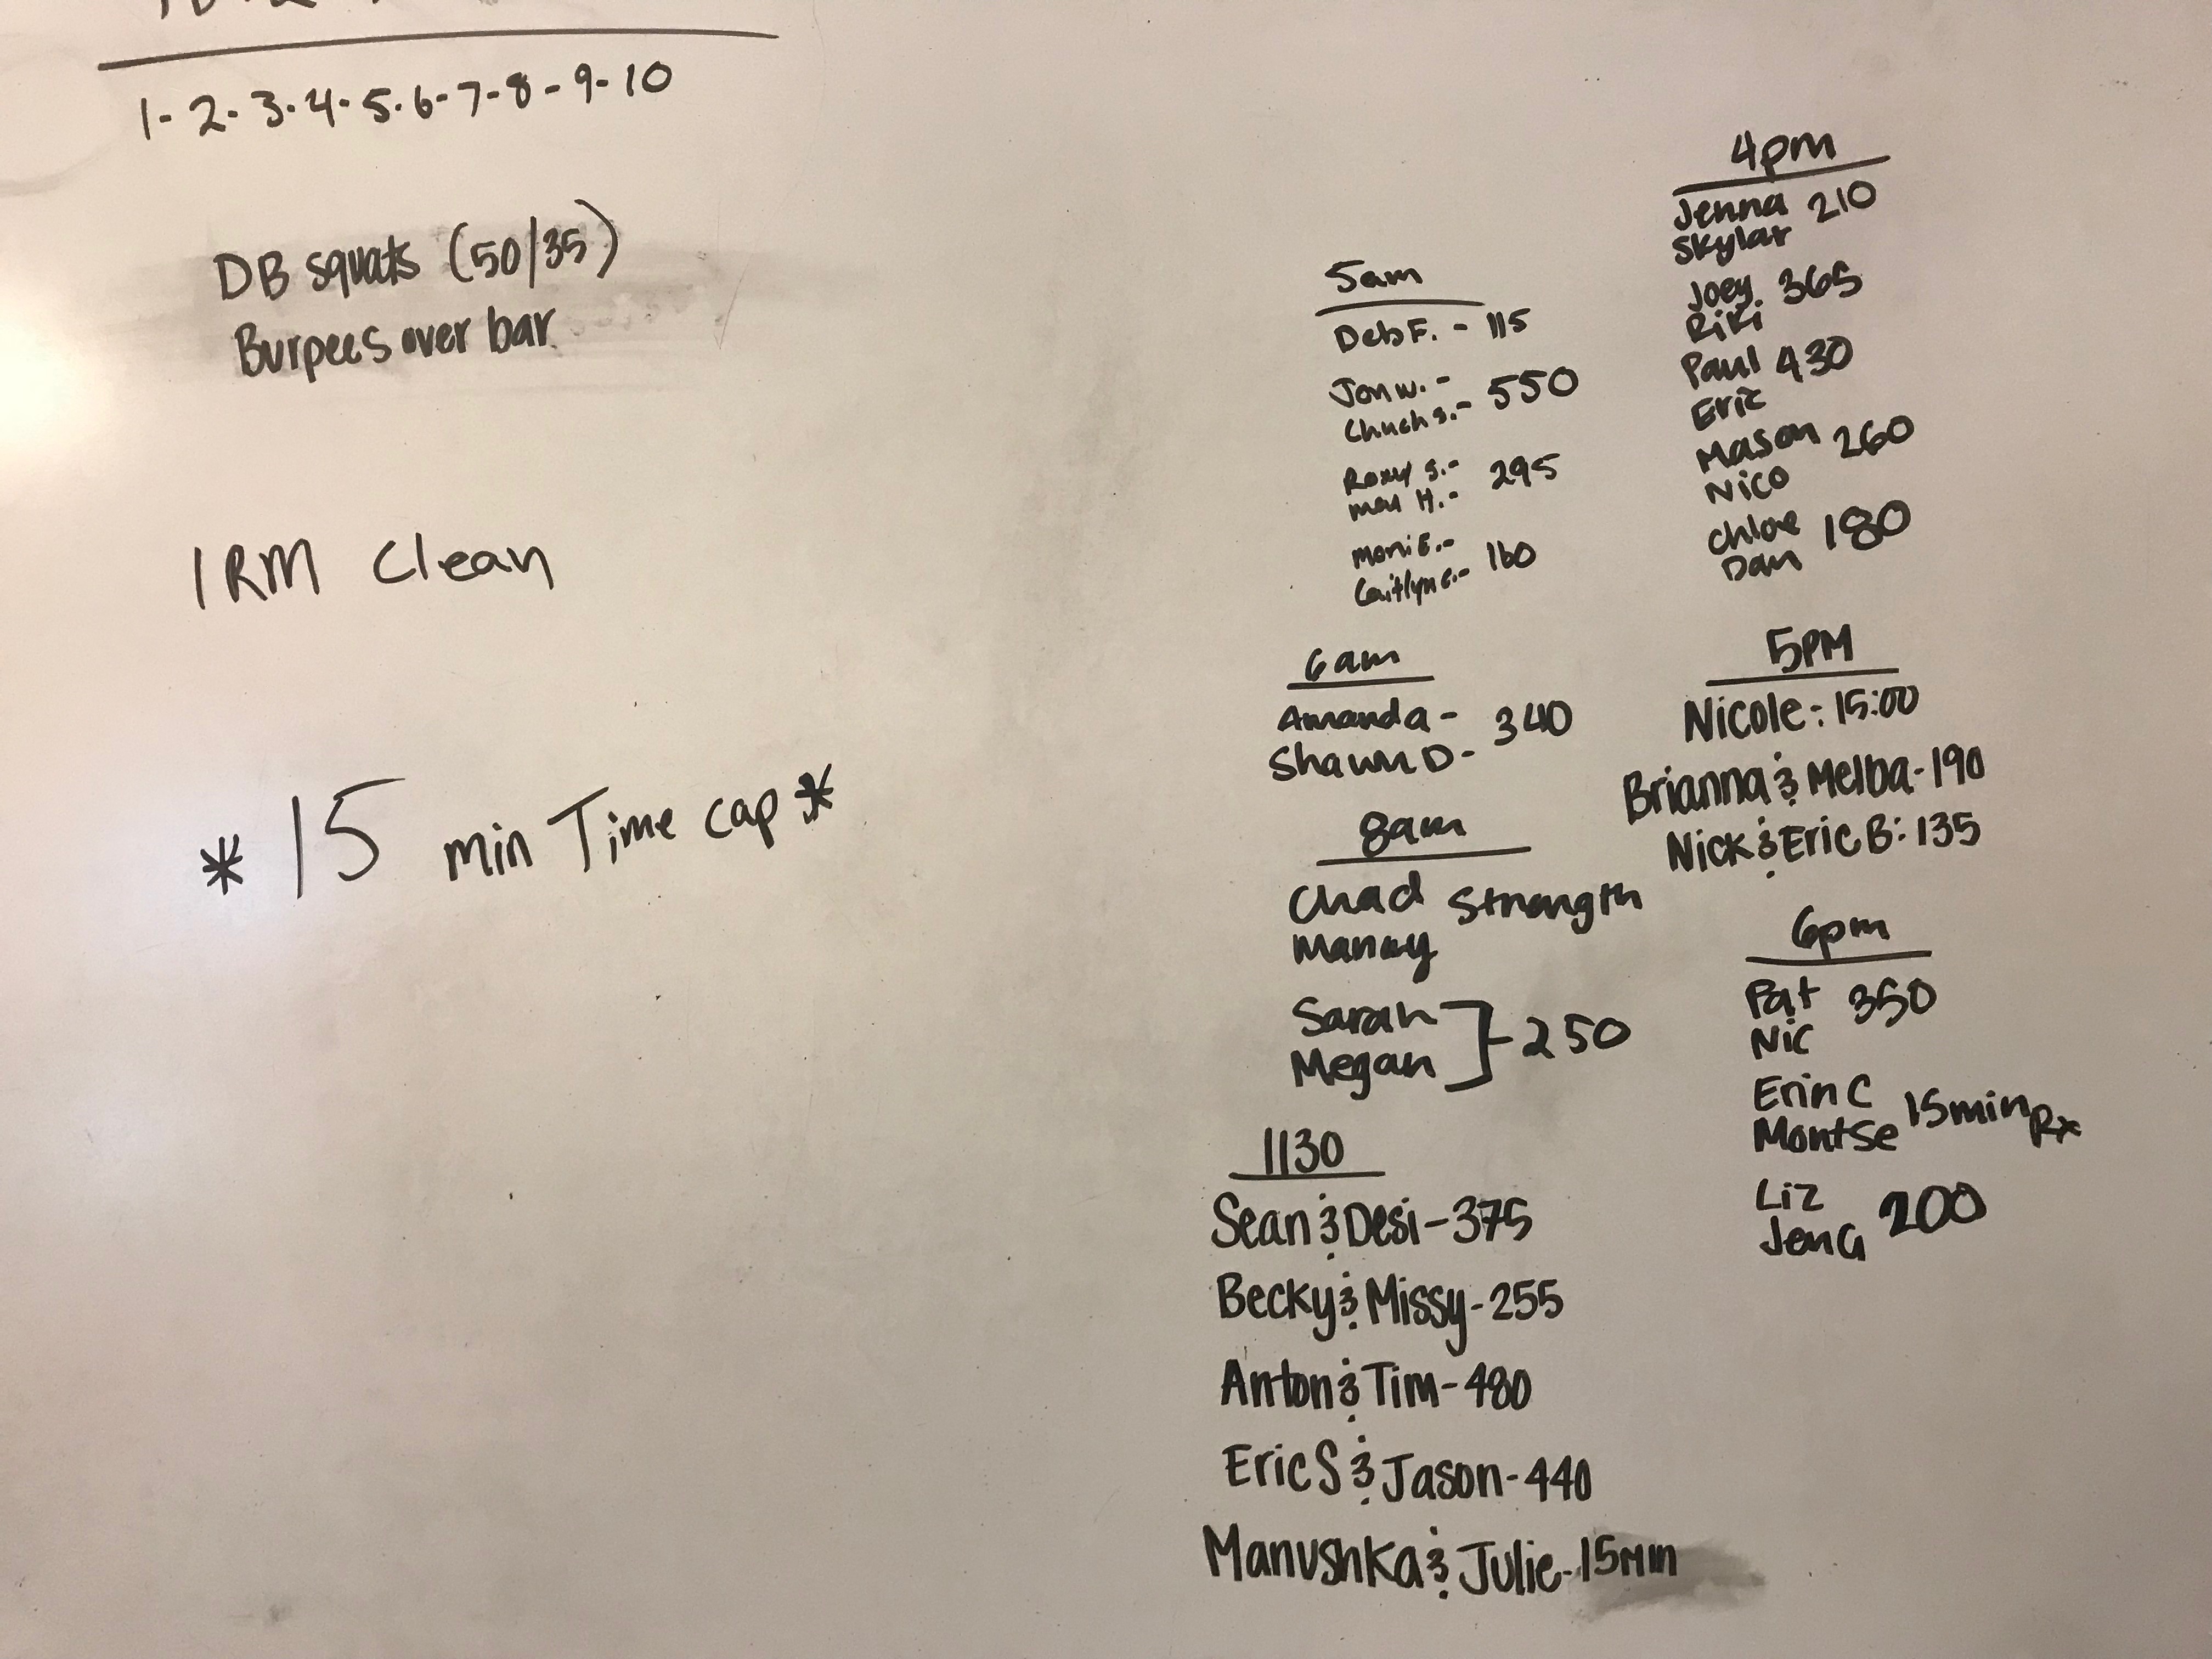 1-2-3-4-5-6-7-8-9-10
DB squats (50/35)
Burpees over bar
1RM Clean
*15 min Time cap*
5am
Deb F. - 115
Jon W. -
Chuck S. - 550
Roxy S. -
Mel H. - 295
Moni E. -
Caitlyn C. - 160
6am
Amanda -
Shawn D - 340
8am
Chad Strength
Manny
Sarah
Megan ]-250
1130
Sean & Desi - 375
Becky & Missy - 255
Anton & Tim - 480
Eric S & Jason - 440
Manushka & Julie - 15min
4pm
Jenna 210
Skylar
Joey 365
Riki
Paul 430
Eric
Mason 260
Nico
Chloe 180
Dan
5PM
Nicole: 15:00
Brianna & Melba - 190
Nick & Eric B: 135
6pm
Pat 350
Nic
Erin C
Montse 15min Rx
Liz
Jen G 200